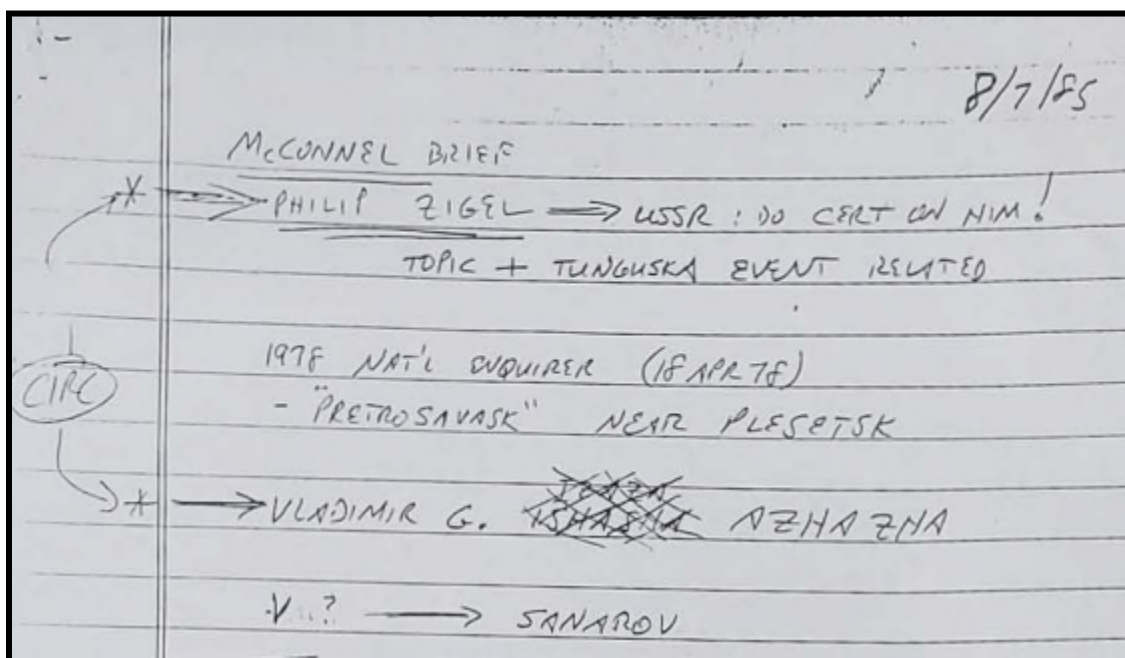 8/7/85
McCONNEL BRIEF
* PHILIP ZIGEL ⇒ USSR : DO CERT ON HIM!
TOPIC + TUNGUSKA EVENT RELATED
1978 NAT'L ENQUIRER (18 APR 78)
CIRC
- "PRETROSAVASK" NEAR PLESETSK
* → VLADIMIR G. AZHAZHA
V ..? → SANAROV